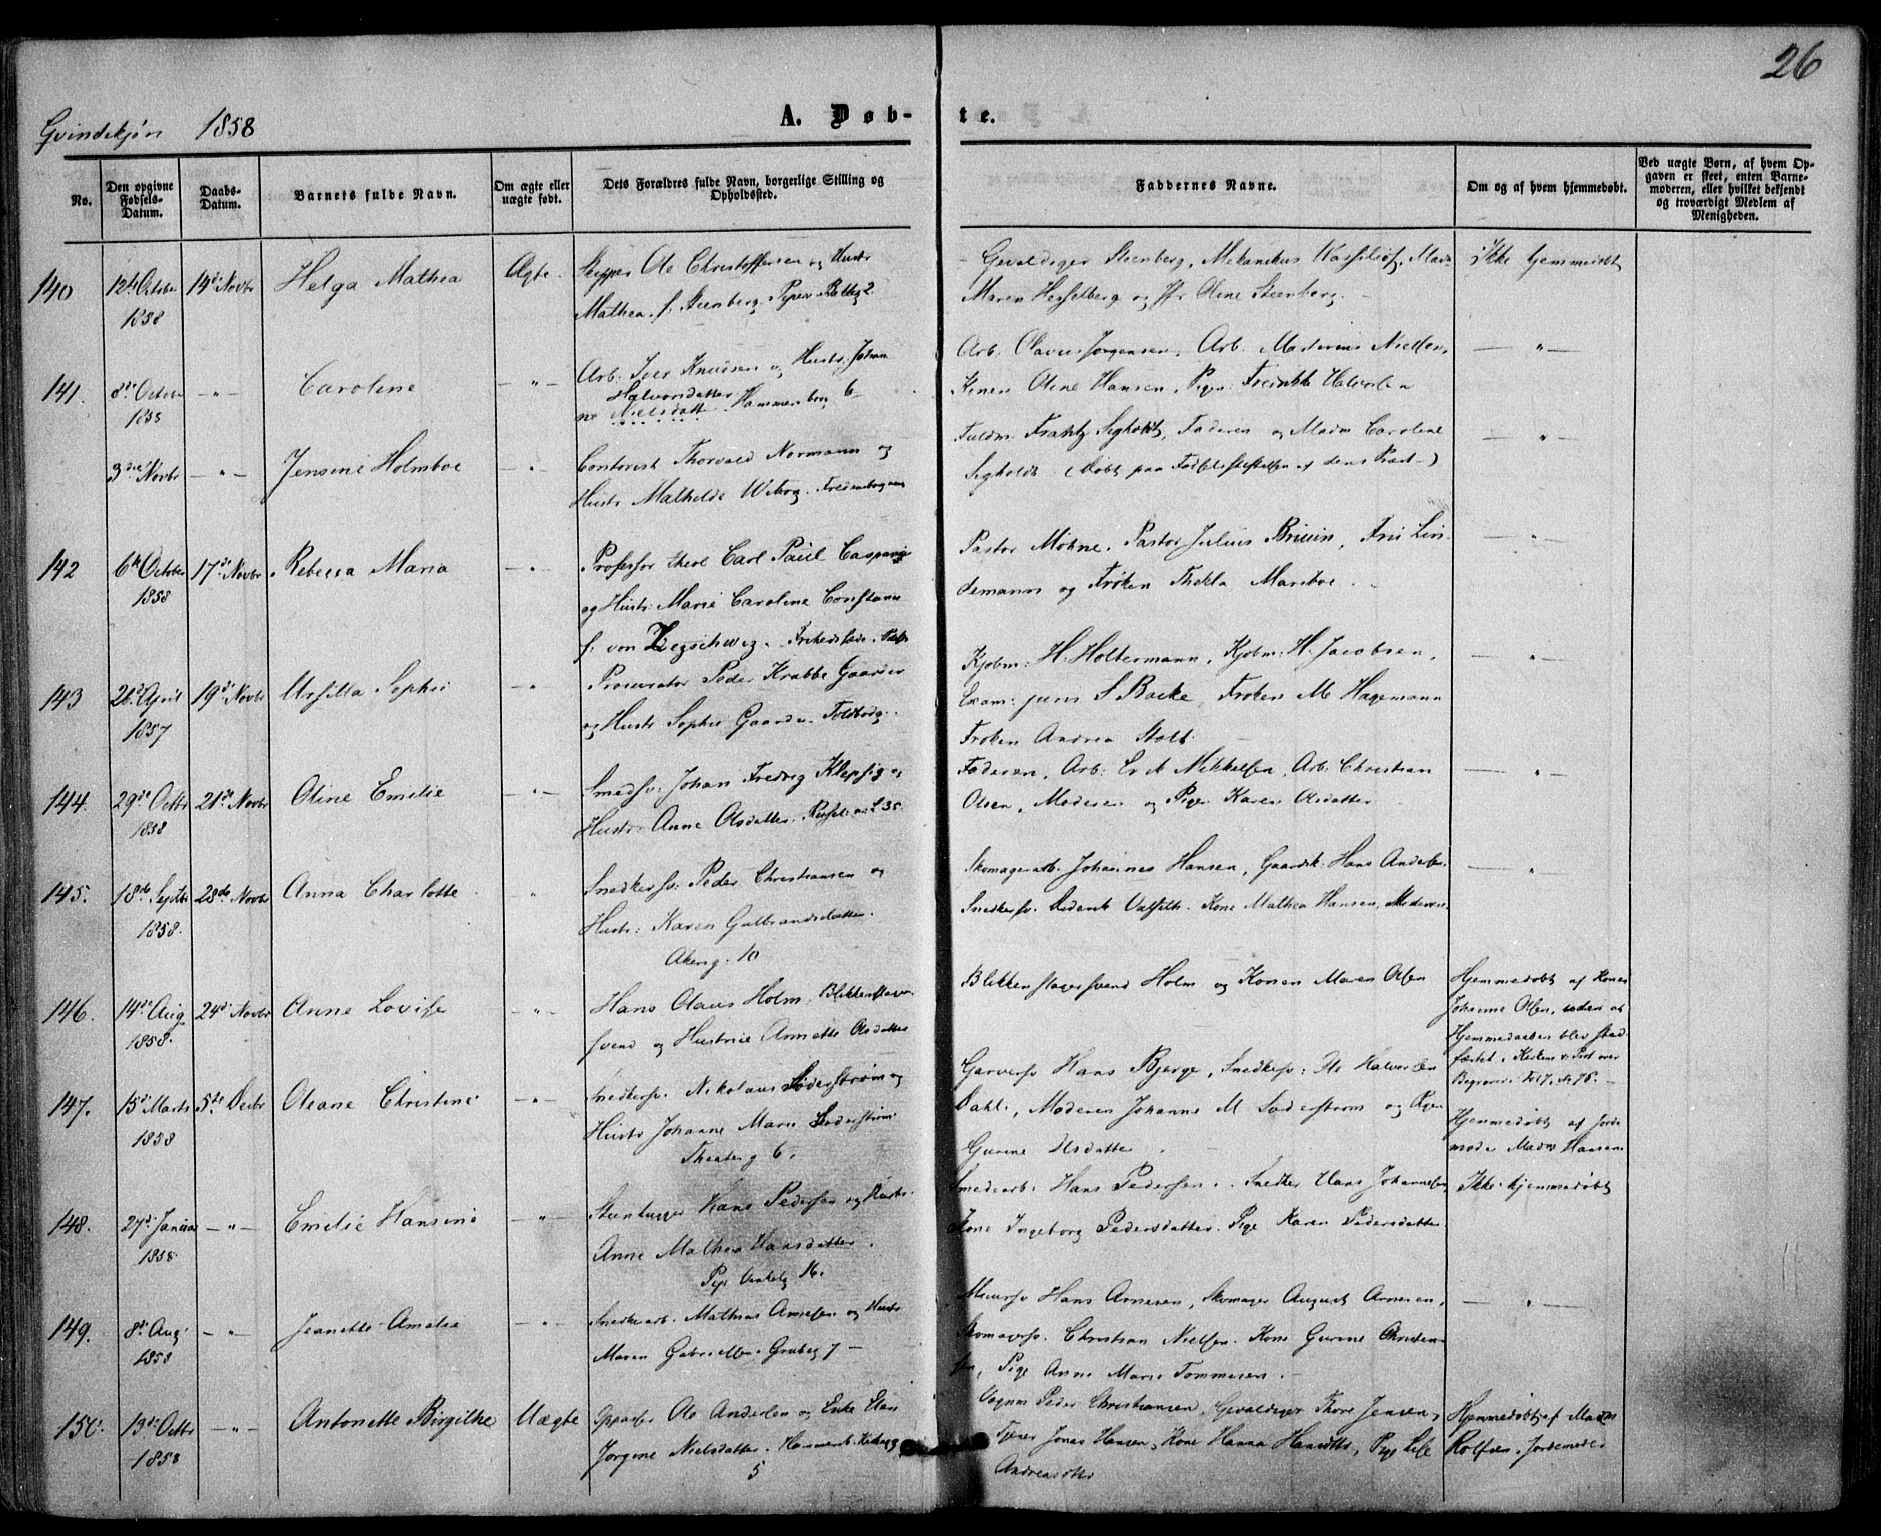 26
Qvindekjøn 1858
A. Døb-
te.
No.
Den opgivne Fødsels-Datum.
Daabs-Datum.
Barnets fulde Navn.
Om ægte eller uægte født.
Dets Forældres fulde Navn, borgerlige Stilling og Opholdssted.
Faddernes Navne.
Om og af hvem hjemmedøbt.
Ved uægte Børn, af hvem Opgaven er skeet, enten Barnemoderen, eller hvilket bekjendt og troværdigt Medlem af Menigheden.
140 12te October 14de Novbr Helga Mathea Ægte
1858
Skipper Ole Christoffersen og Hustr
Mathea f. Steenberg. Piper 2
Gevaldiger Steenberg, Mekanikus
Maren Hesselberg og Jfr Oline Steenberg.
Ikke hjemmedøbt
141. 8de October — " — Caroline — " —
1858
Arb. Iver Knudsen og Hustr. Johan
Halvorsdatter
ne Nielsdatt. Hammersborg 6
Arb. Olavus Jørgensen, Arb. Nielsen,
Konen Oline Hansen, Pigen Fredrikke Halvorsen
— " —
3die Novbr — " — Jensine Holmboe — " —
Contorist Thorvald Normann og
Hustr Mathilde Wiborg.
Fuldm. Frantz Segholdt, Faderen og Madm Caroline
Segholdt (Døbt paa Fødselsstiftelsen af dens Præst)
— " —
142 6te October 17de Novbr Rebecca Maria — " —
1858
Professor theol Carl Paul Caspari
og Hustr: Marie Caroline Constance
f. von Zezschwitz.
Pastor Mohne, Pastor Julius Bruun, Fru Lin
demann og Frøken Thekla Mariboe.
— " —
143 26de April 19de Novbr Ursilla Sophie — " —
1857
Procurator Peder Krabbe Gaarder
og Hustr Sophie Gaarder. Toldbodg.
Kjøbm: H: Holtermann, Kjøbm: H. Jacobsen,
Exam: juris S Backe, Frøken M Hagemann
Frøken Andrea Stolt.
— " —
144. 29de Octbr 21de Novbr Oline Emilie — " —
1858
Smedsv: Johan Fredrig Klepzig og
Hustr: Anne Olsdatter. 35
Faderen, Arb: Erik Mikkelsen, Arb: Christian
Olsen, Moderen og Pigen Karen Olsdatter
— " —
145. 18de Septbr 28de Novbr Anna Charlotte "
1858.
Snedkersv: Peder Christiansen og
Hustr: Karen Gulbrandsdatter.
Akersg. 10
Skomagerarb. Johannes Hansen, Gaardsk: Hans Andersen
Snedkersv. Kone Mathea Hansen, Moderen.
— " —
146. 14de Aug 24de Novbr Anne Lovise — " —
1858.
Hans Olaus Holm, Blikkenslager
svend og Hustrue Annette Olsdatter
Blikkenslagersvend Holm og Konen Maren Olsen
Hjemmedøbt af Konen
Johanne Olsen, uden at
Hjemmedaaben blev stad
fæstet i Kirken
147. 15de Marts 5te Decbr Oleane Christine — " —
1858
Snedkersv. Nikolaus Søderstrøm og
Hustr Johanne Marie Søderstrøm
Theaterg 6.
Garversv Hans Bjerge, Snedkersv: Ole Halvorsen
Dahl, Moderen Johanne M Søderstrøm og Pigen
Gurine Olsdatter
Hjemmedøbt af Jorde
moder Madm Hansen
148. 27de Januar — " — Emilie Hansine — " —
1858
Steenhugger Hans Pedersen og Hustr.
Anne Mathea Hansdatter.
16.
Smedearb: Hans Pedersen, Snedker Hans Johannesen
Kone Ingeborg Pedersdatter, Pige Karen Pedersdatter
Ikke hjemmedøbt
149. 8de Aug — " — Jeanette Amalie — " —
1858
Snedkerarb. Mathias Arnesen og Hustr
Maren Gabrielsen. Grubeg 7
Muursv Hans Arnesen, Skomager August Arnesen,
Skomagersv. Christian Nielsen, Kone Gurine Christen
sen, Pige Anne Marie Tommesen.
— " —
150. 13de Octbr — " — Antonette Birgithe Uægte
1858
Oppasser Ole Andersen og Enke Elen
Jørgine Nielsdatter. Hammersb.
5
Vognm Peder Christiansen, Gevaldiger Thore Jensen,
Tjener Jonas Hansen, Kone Hanna Hansdttr, Pige Lise
Andreasdttr
Hjemmedøbt af Madm
Rolfsen, Jordemoder